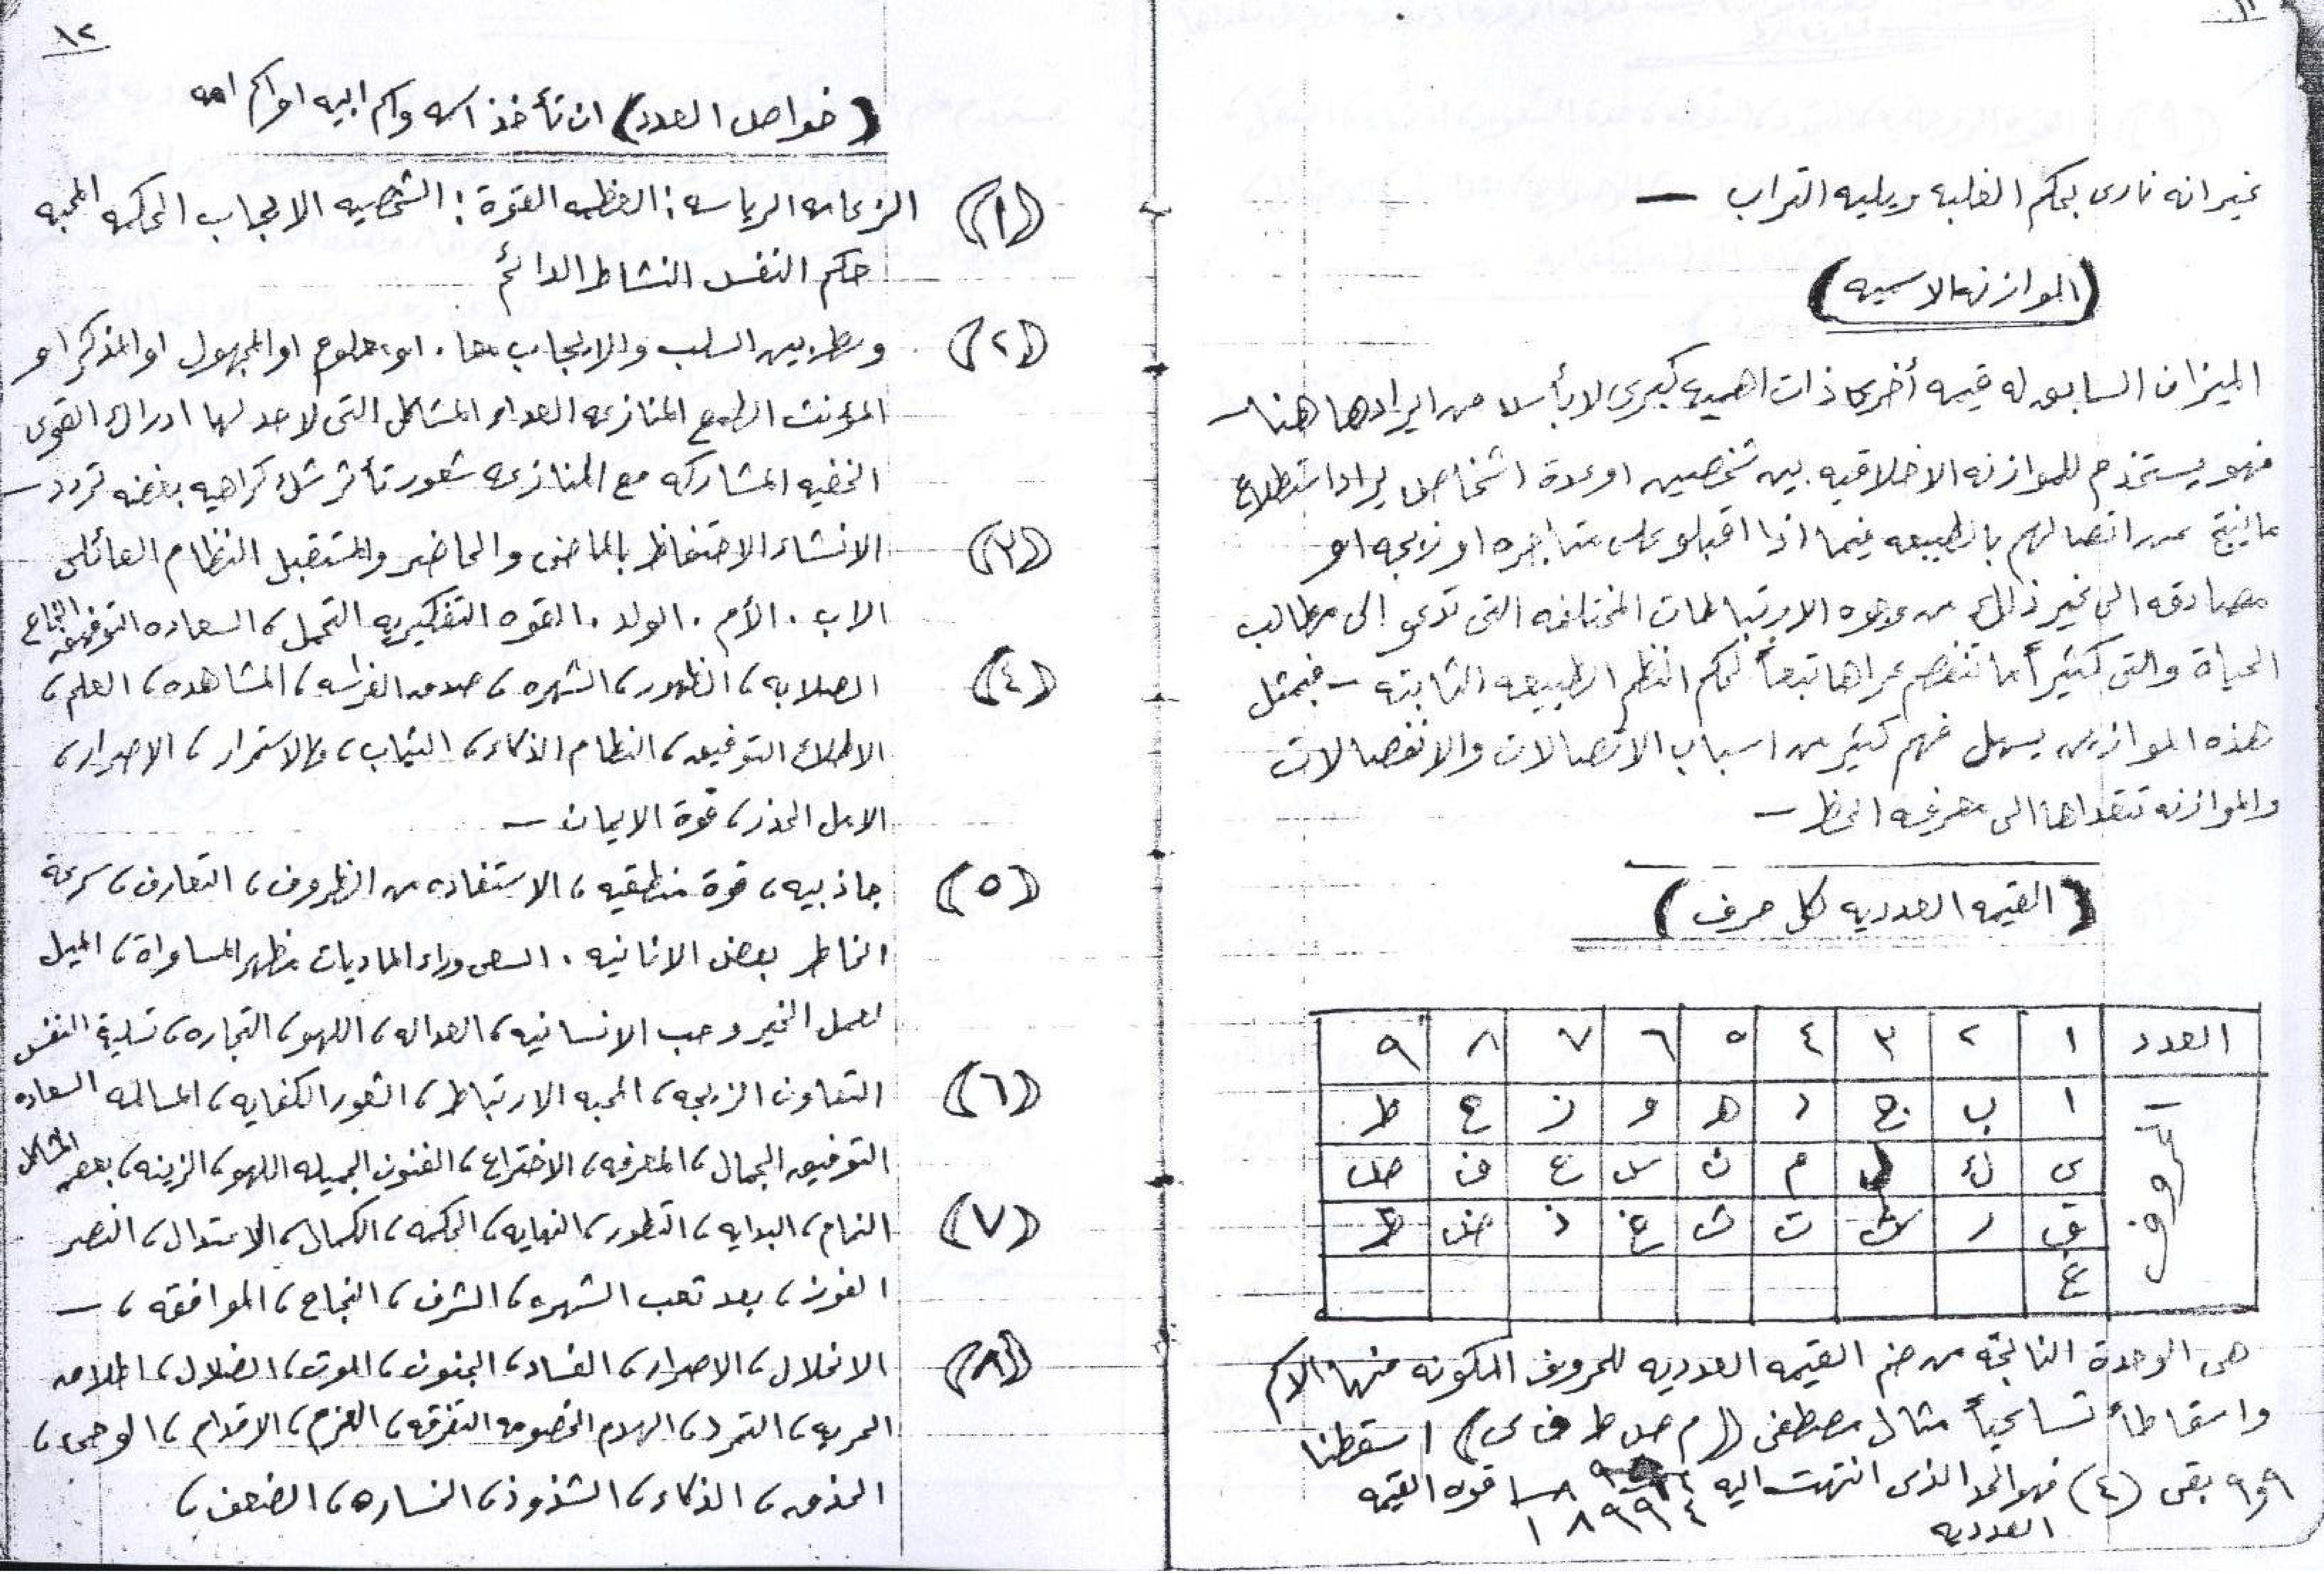 ١١
غير انه نارى بحكم الغلبه ويليه التراب —
(الموازنه الاسميه)
الميزان السابق له قيمه أخرى ذات اهميه كبرى لا بأس من ايرادها هنا —
فهو يستخدم للموازنه الاخلاقيه بين شخصين او عدة اشخاص يراد استطلاع
ما ينتج عن اتصالهم بالطبيعه فيما اذا اقبلو على متاجره او زيجه او
مصادقه الى غير ذلك من وجوه الارتباطات المختلفه التى تدعو الى مطالب
الحياة والتى كثيراً ما تنفصم عراها تبعاً لحكم النظم الطبيعه الثابته — فبمثل
هذه الموازين يسهل فهم كثير من اسباب الاتصالات والانفصالات
والموازنه تتعداها الى معرفه الحظ —
(القيمه العدديه لكل حرف)
العدد ١ ٢ ٣ ٤ ٥ ٦ ٧ ٨ ٩
الحروف
ا ب ج د ه و ز ح ط
ى ك ل م ن س ع ف ص
ق ر ش ت ث خ ذ ض ظ
غ
هى الوحدة الناتجه من ضم القيمه العدديه للحروف المكونه منها الاسم
واسقاطاً تساعياً مثال مصطفى (م ص ط ف ى) اسقطنا
٩ و٩ بقى (٤) فهو الحد الذى انتهت اليه قوه القيمه
العدديه
٤ ٩ ٩ ٨ ١
١٢
(خواص العدد) ان تأخذ اسمه واسم ابيه او اسم امه
(١) الزعامه الرياسه: العظمه القوة: الشخصيه الايجاب الحكمه المحبه
حكم النفس النشاط الدائم
(٢) وسط بين السلب والايجاب معا. او معلوم او المجهول او المذكر او
المؤنث الطمع المنازعه العداء المشاكل التى لا حد لها ادراك القوى
الخفيه المشاركه مع المنازعه شعور تأثر شك كراهيه بغضه تردد —
(٣) الانشاء الاحتفاظ بالماضى والحاضر والمستقبل النظام العائلى
الاب. الأم. الولد. القوه التفكيريه التحمل، السعاده التوفيق النجاح
(٤) الصلابه، الظهور، الشهره، صدق الفراسه، المشاهده، العلم،
الاطلاع التوفيق، النظام الذكاء، الثبات، والاستمرار، الاصرار،
الامل الحذر، قوة الايمان —
(٥) جاذبيه، قوة منطقيه، الاستفاده من الظروف، التعارف، سرعة
الخاطر بعض الانانيه. السعى وراء الماديات مظهر المساواة، الميل
لعمل الخير وحب الانسانيه، العداله، اللهو، التجاره، تسلية النفس
(٦) التعاون الزيجه، المحبه الارتباط، الشعور الكفايه، المسالمه السعاده
التوفيق الجمال، المعرفه، الاختراع، الفنون الجميله اللهو، الزينه، بعض المشاكل
(٧) التمام، البدايه، التطور، النهايه، الحكمه، الكمال، الاعتدال، النصر
الفوز، بعد تعب الشهره، الشرف، النجاح، الموافقه، —
(٨) الانحلال، الاصرار، الفساد، الجنون، الموت، الضلال، اطلاق
الحريه، التمرد، الهدم الخصومه التفرقه، العزم، الاقدام، الوحى،
الحذق، الذكاء، الشذوذ، الخساره، الضعف،